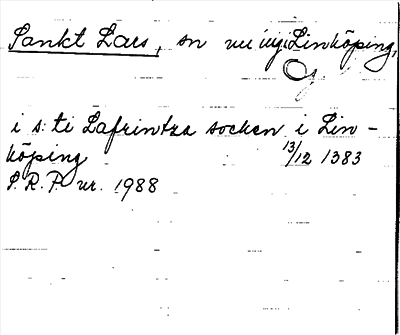 Sankt Lars, sn nu ingi Linköping,
Og.
i s:ti Lafrintza socken i Lin-
köping 13/12 1383
S.R.P. nr. 1988